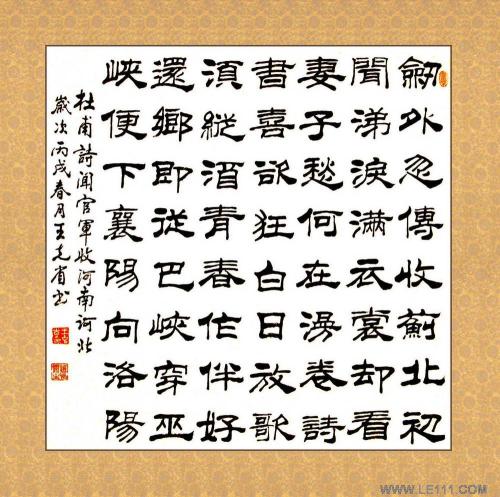 劒外忽傳收薊北初
聞涕淚滿衣裳却看
妻子愁何在漫卷詩
書喜欲狂白日放歌
須縱酒青春作伴好
還鄉即從巴峽穿巫
峽便下襄陽向洛陽
杜甫詩聞官軍收河南河北
歲次丙戌春月王省书
WWW.LE111.COM